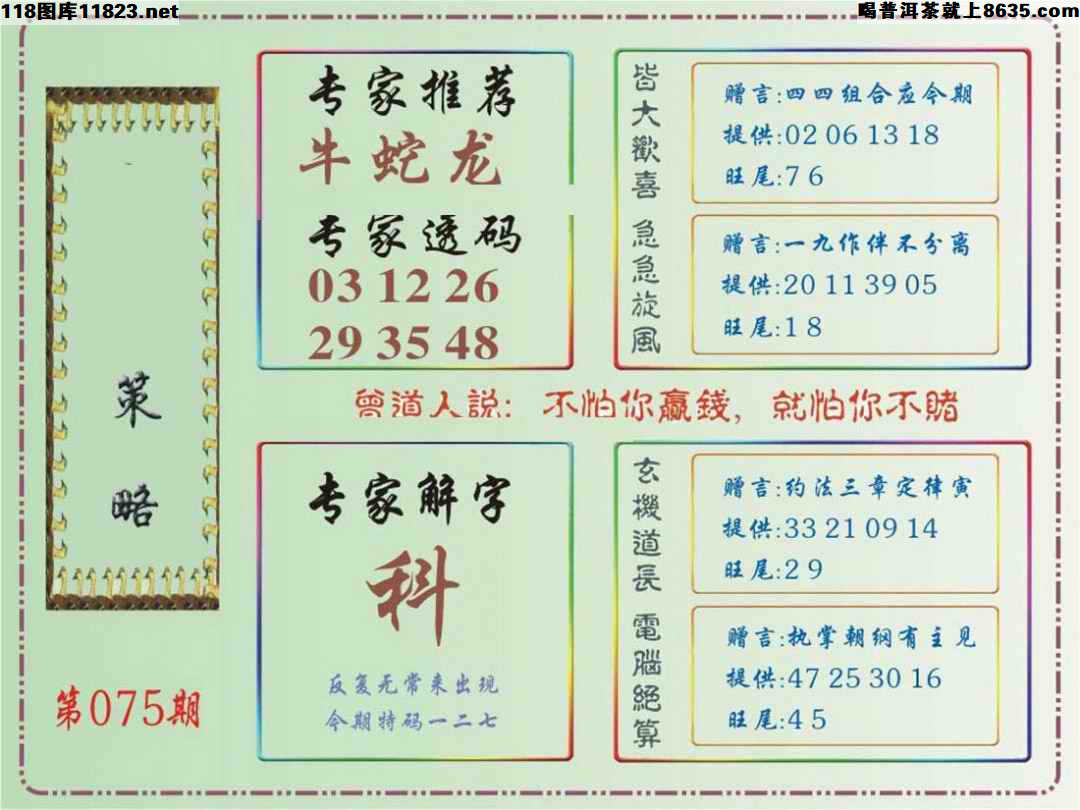 118图库11823.net
喝普洱茶就上8635.com
策
略
第075期
专家推荐
牛蛇龙
专家透码
03 12 26
29 35 48
皆大歡喜
赠言:四四组合应今期
提供:02 06 13 18
旺尾:7 6
急急旋風
赠言:一九作伴不分离
提供:20 11 39 05
旺尾:1 8
曾道人説: 不怕你贏錢, 就怕你不賭
专家解字
科
反复无常来出现
今期特码一二七
玄機道長
赠言:约法三章定律寅
提供:33 21 09 14
旺尾:2 9
電腦絕算
赠言:执掌朝纲有主见
提供:47 25 30 16
旺尾:4 5